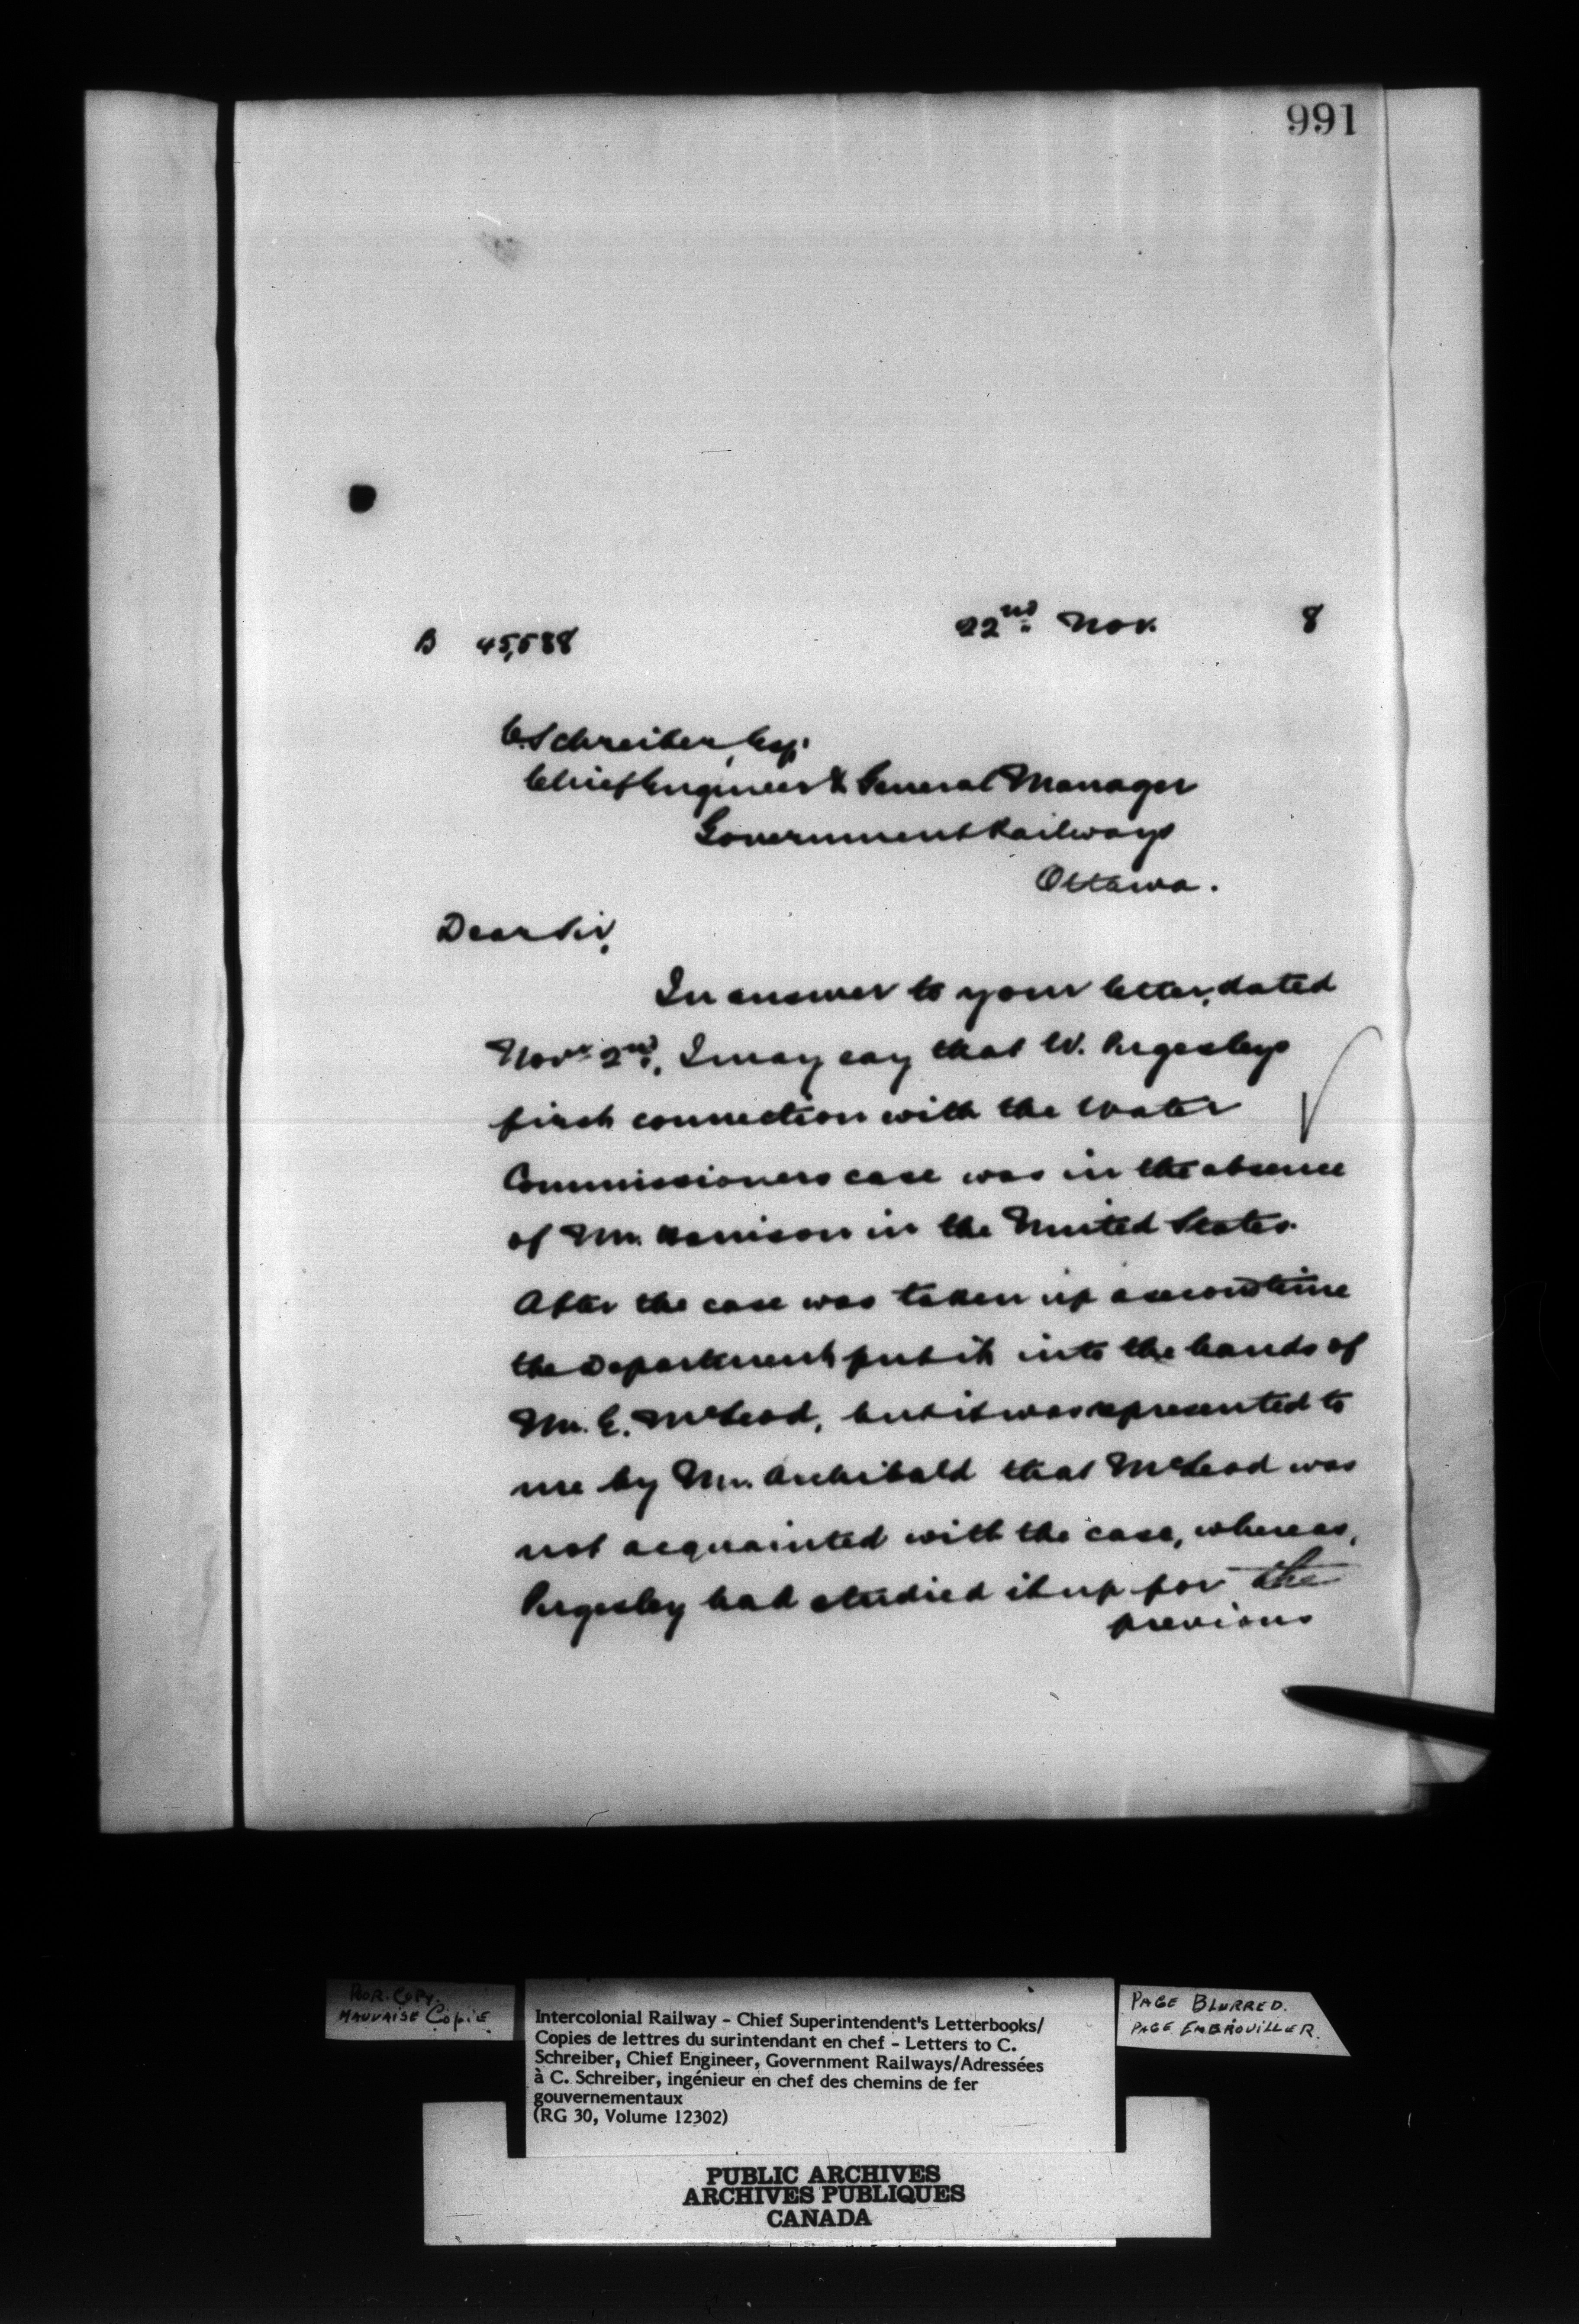 991
22nd. Nov. 8
B 45,588
C. Schreiber, Esq.
Chief Engineer & General Manager
Government Railways
Ottawa.
Dear Sir,
In answer to your letter, dated
Novr 2nd, I may say that W. Pugesleys
first connection with the Water
Commissioners case was in the absence
of Mr. Harrison in the United States.
After the case was taken up a second time
the Department put it into the hands of
Mr. E. McLeod, but it was represented to
me by Mr. Archibald that McLeod was
not acquainted with the case, whereas,
Pugesley had studied it up for the
previous
POOR. COPY.
MAUVAISE COPIE
Intercolonial Railway - Chief Superintendent's Letterbooks/
Copies de lettres du surintendant en chef - Letters to C.
Schreiber, Chief Engineer, Government Railways/Adressées
à C. Schreiber, ingénieur en chef des chemins de fer
gouvernementaux
(RG 30, Volume 12302)
PAGE BLURRED.
PAGE EMBROUILLER.
PUBLIC ARCHIVES
ARCHIVES PUBLIQUES
CANADA